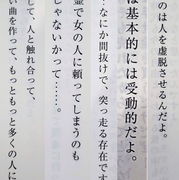 のは人を虚脱させるんだよ。
は基本的には受動的だよ。
…なにか間抜けで、突っ走る存在です
壺で女の人に頼ってしまうのも
じゃないかって……。
して、人と触れ合って、
い曲を作って、もっともっと多くの人に